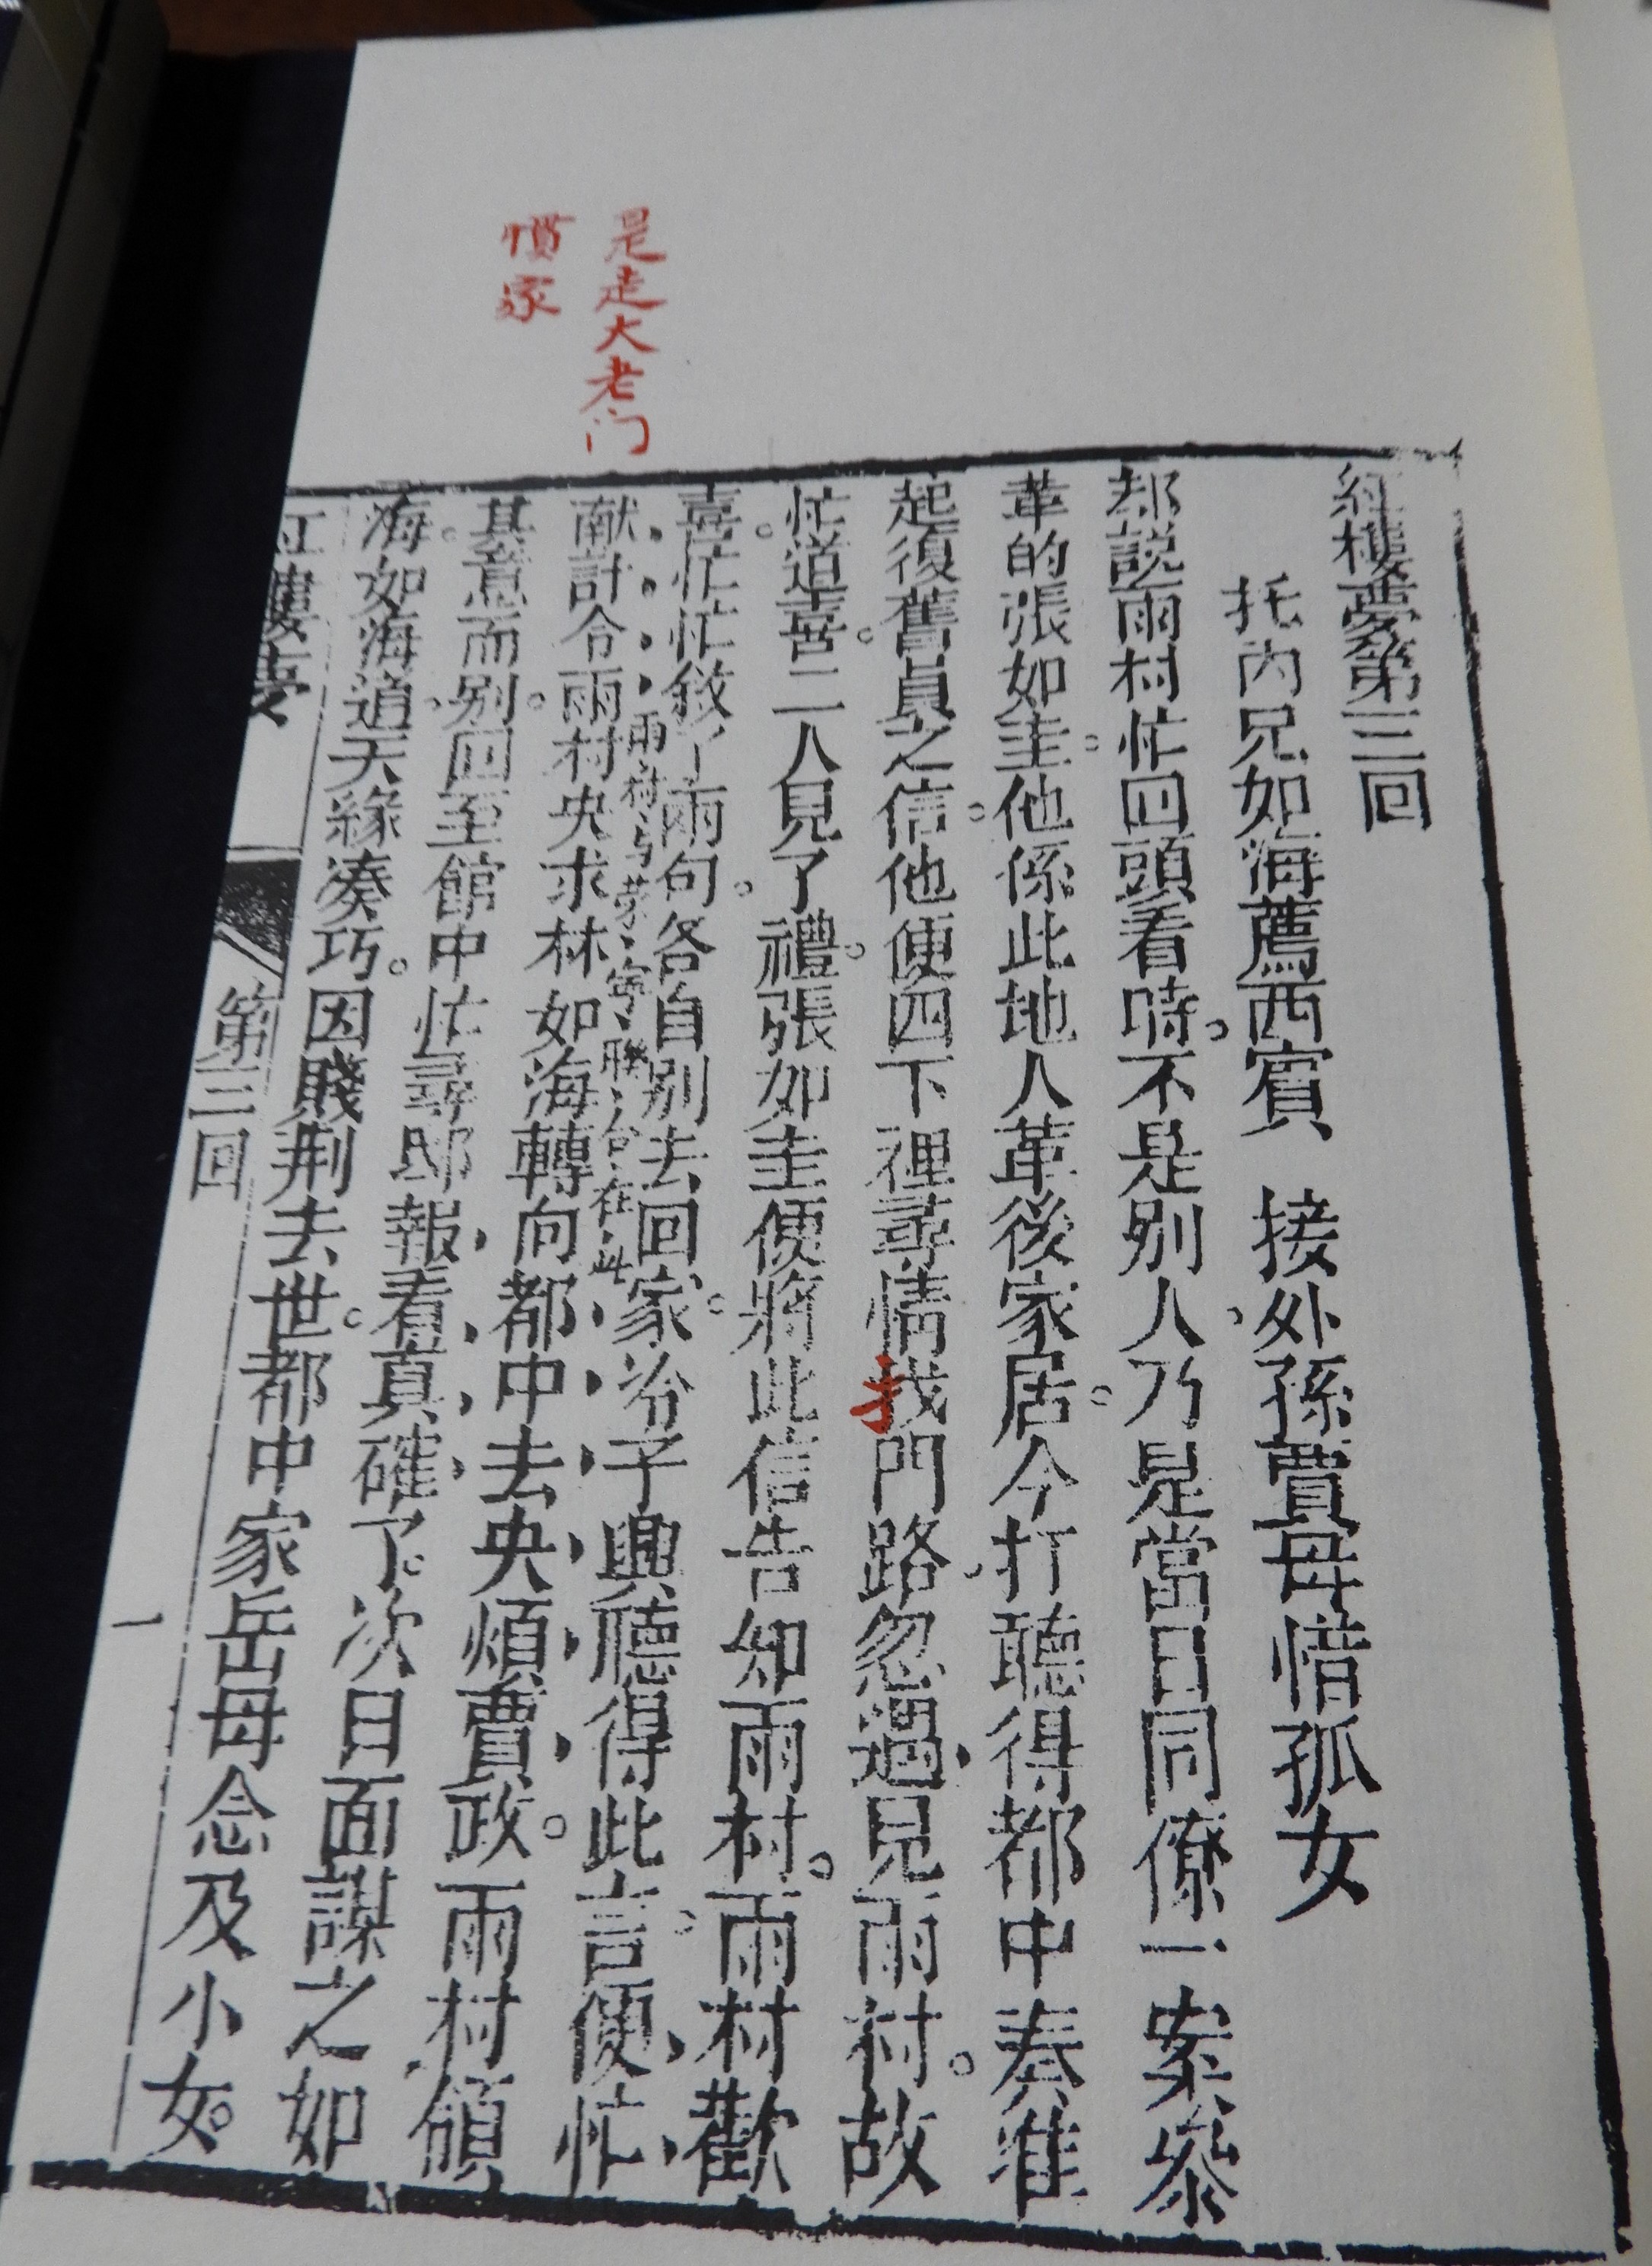 是走大老门
慣家
紅樓夢第三回
托內兄如海薦西賓　接外孫賈母惜孤女
却說雨村忙回頭看時不是別人乃是當日同僚一案參
革的張如圭。他係此地人革後家居。今打聽得都中奏准
起復舊員之信。他便四下裡尋情找門路忽遇見雨村。故
忙道喜。二人見了禮。張如圭便將此信告知雨村。雨村歡
喜。忙忙敘了兩句。各自別去回家。冷子興聽得此言便忙
雨村与荣宁聯合在此
献計令雨村央求林如海轉向都中去央煩賈政。雨村領
其意而別。回至館中忙尋邸報看真確了。次日面謀之如
海。如海道天緣湊巧。因賤荆去世。都中家岳母念及小女。
紅樓夢
第三回
一